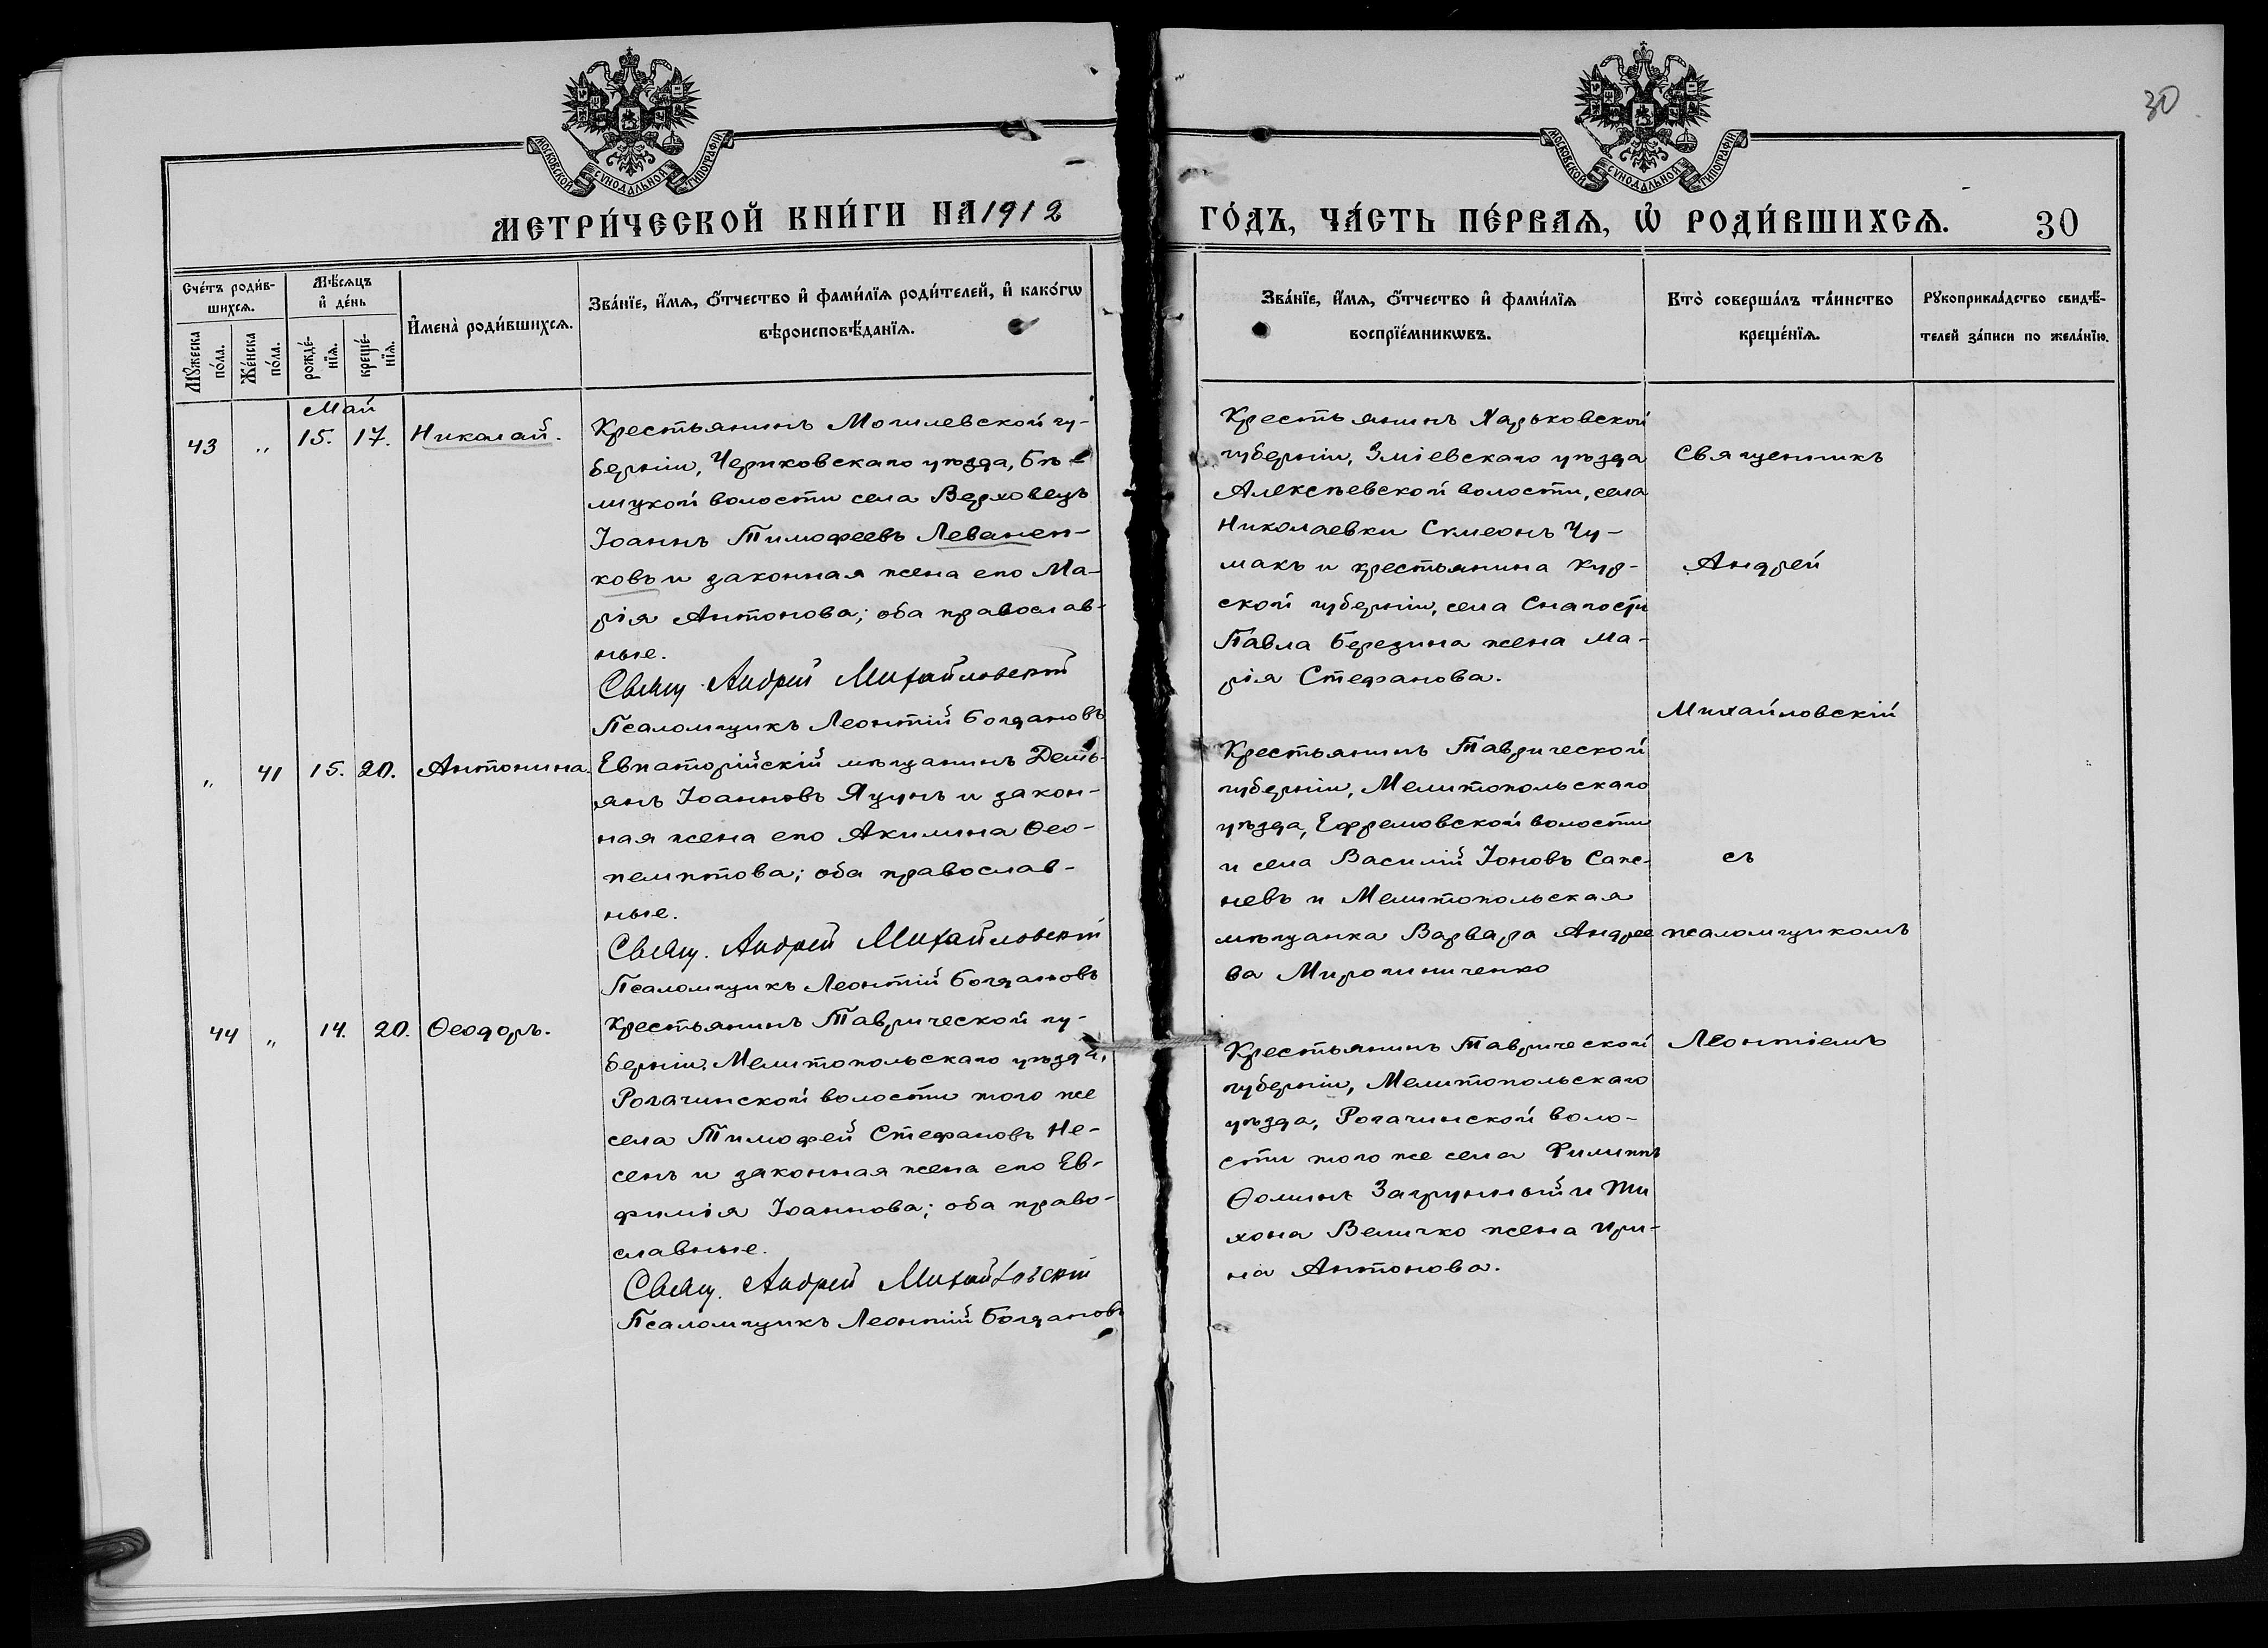 30
МОСКОВСКОЙ СѴНОДАЛЬНОЙ ТИПОГРАФІИ
МОСКОВСКОЙ СѴНОДАЛЬНОЙ ТИПОГРАФІИ
МЕТРИ́ЧЕСКОЙ КНИ́ГИ НА 1912
ГО́ДЪ, ЧА́СТЬ ПЕ́РВАѦ, Ѡ҆ РОДИ́ВШИХСѦ. 30
Сче́тъ роди́в-
шихсѧ.
Мꙋ́жеска
по́ла.
Же́нска
по́ла.
Мѣ́сѧцъ
и҆ де́нь
рожде́-
нїѧ.
креще́-
нїѧ.
И҆мена̀ роди́вшихсѧ.
Зва́нїе, и҆́мѧ, ѻ҆́тчество и҆ фами́лїѧ роди́телей, и҆ како́гѡ
вѣроисповѣ́данїѧ.
Зва́нїе, и҆́мѧ, ѻ҆́тчество и҆ фами́лїѧ
воспрїе́мникѡвъ.
Кто̀ соверша́лъ та́инство
креще́нїѧ.
Рꙋкоприкла́дство свидѣ́-
телей за́писи по жела́нїю.
Май
43 „ 15. 17. Николай.
Крестьянинъ Могилевской гу-
берніи, Чериковскаго уѣзда, Бѣ-
лицкой волости села Верховецъ
Іоаннъ Тимофеевъ Леванен-
ковъ и законная жена его Ма-
рія Антонова; оба православ-
ные.
Свящ. Андрей Михайловскій
Псаломщикъ Леонтій Богдановъ
Крестьянинъ Харьковской
губерніи, Зміевскаго уѣзда
Алексѣевской волости, села
Николаевки Симеонъ Чу-
макъ и крестьянина Кур-
ской губерніи, села Снагости
Павла Березина жена Ма-
рія Стефанова.
Священникъ
Андрей
Михайловскій
съ
псаломщикомъ
Леонтіемъ
„ 41 15. 20. Антонина.
Евпаторійскій мѣщанинъ Деmь-
янъ Іоанновъ Яцунъ и закон-
ная жена его Акилина Ѳео-
пемптова; оба православ-
ные.
Свящ. Андрей Михайловскій
Псаломщикъ Леонтій Богдановъ
Крестьянинъ Таврической
губерніи, Мелитопольскаго
уѣзда, Ефремовской волости
и села Василій Іоновъ
и Мелитопольская
мѣщанка Варвара Андрее
ва Мирошниченко
44 „ 14. 20. Ѳеодоръ.
Крестьянинъ Таврической гу-
берніи, Мелитопольскаго уѣзда,
Рогачинской волости того же
села Тимофей Стефановъ Не-
сенъ и законная жена его Ев-
фимія Іоаннова; оба право-
славные.
Свящ. Андрей Михайловскій
Псаломщикъ Леонтій Богдановъ
Крестьянинъ Таврической
губерніи, Мелитопольскаго
уѣзда, Рогачинской воло-
сти того же села Филиппъ
Ѳоминъ и Ти
хона Величко жена Ири-
на Антонова.